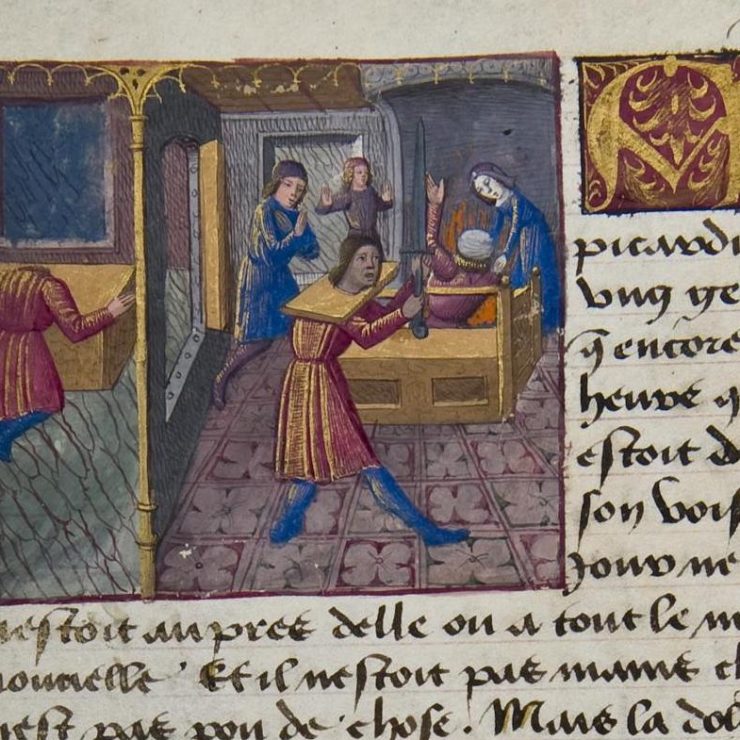 picardi
vng ge
q̃ encore
heure q
estoit d
son vois
Jouv ne
nestoit aupres delle ou a tout le m
nouuelle Et il nestoit pas maine ch
nest pas pou de chose. Mais la dol